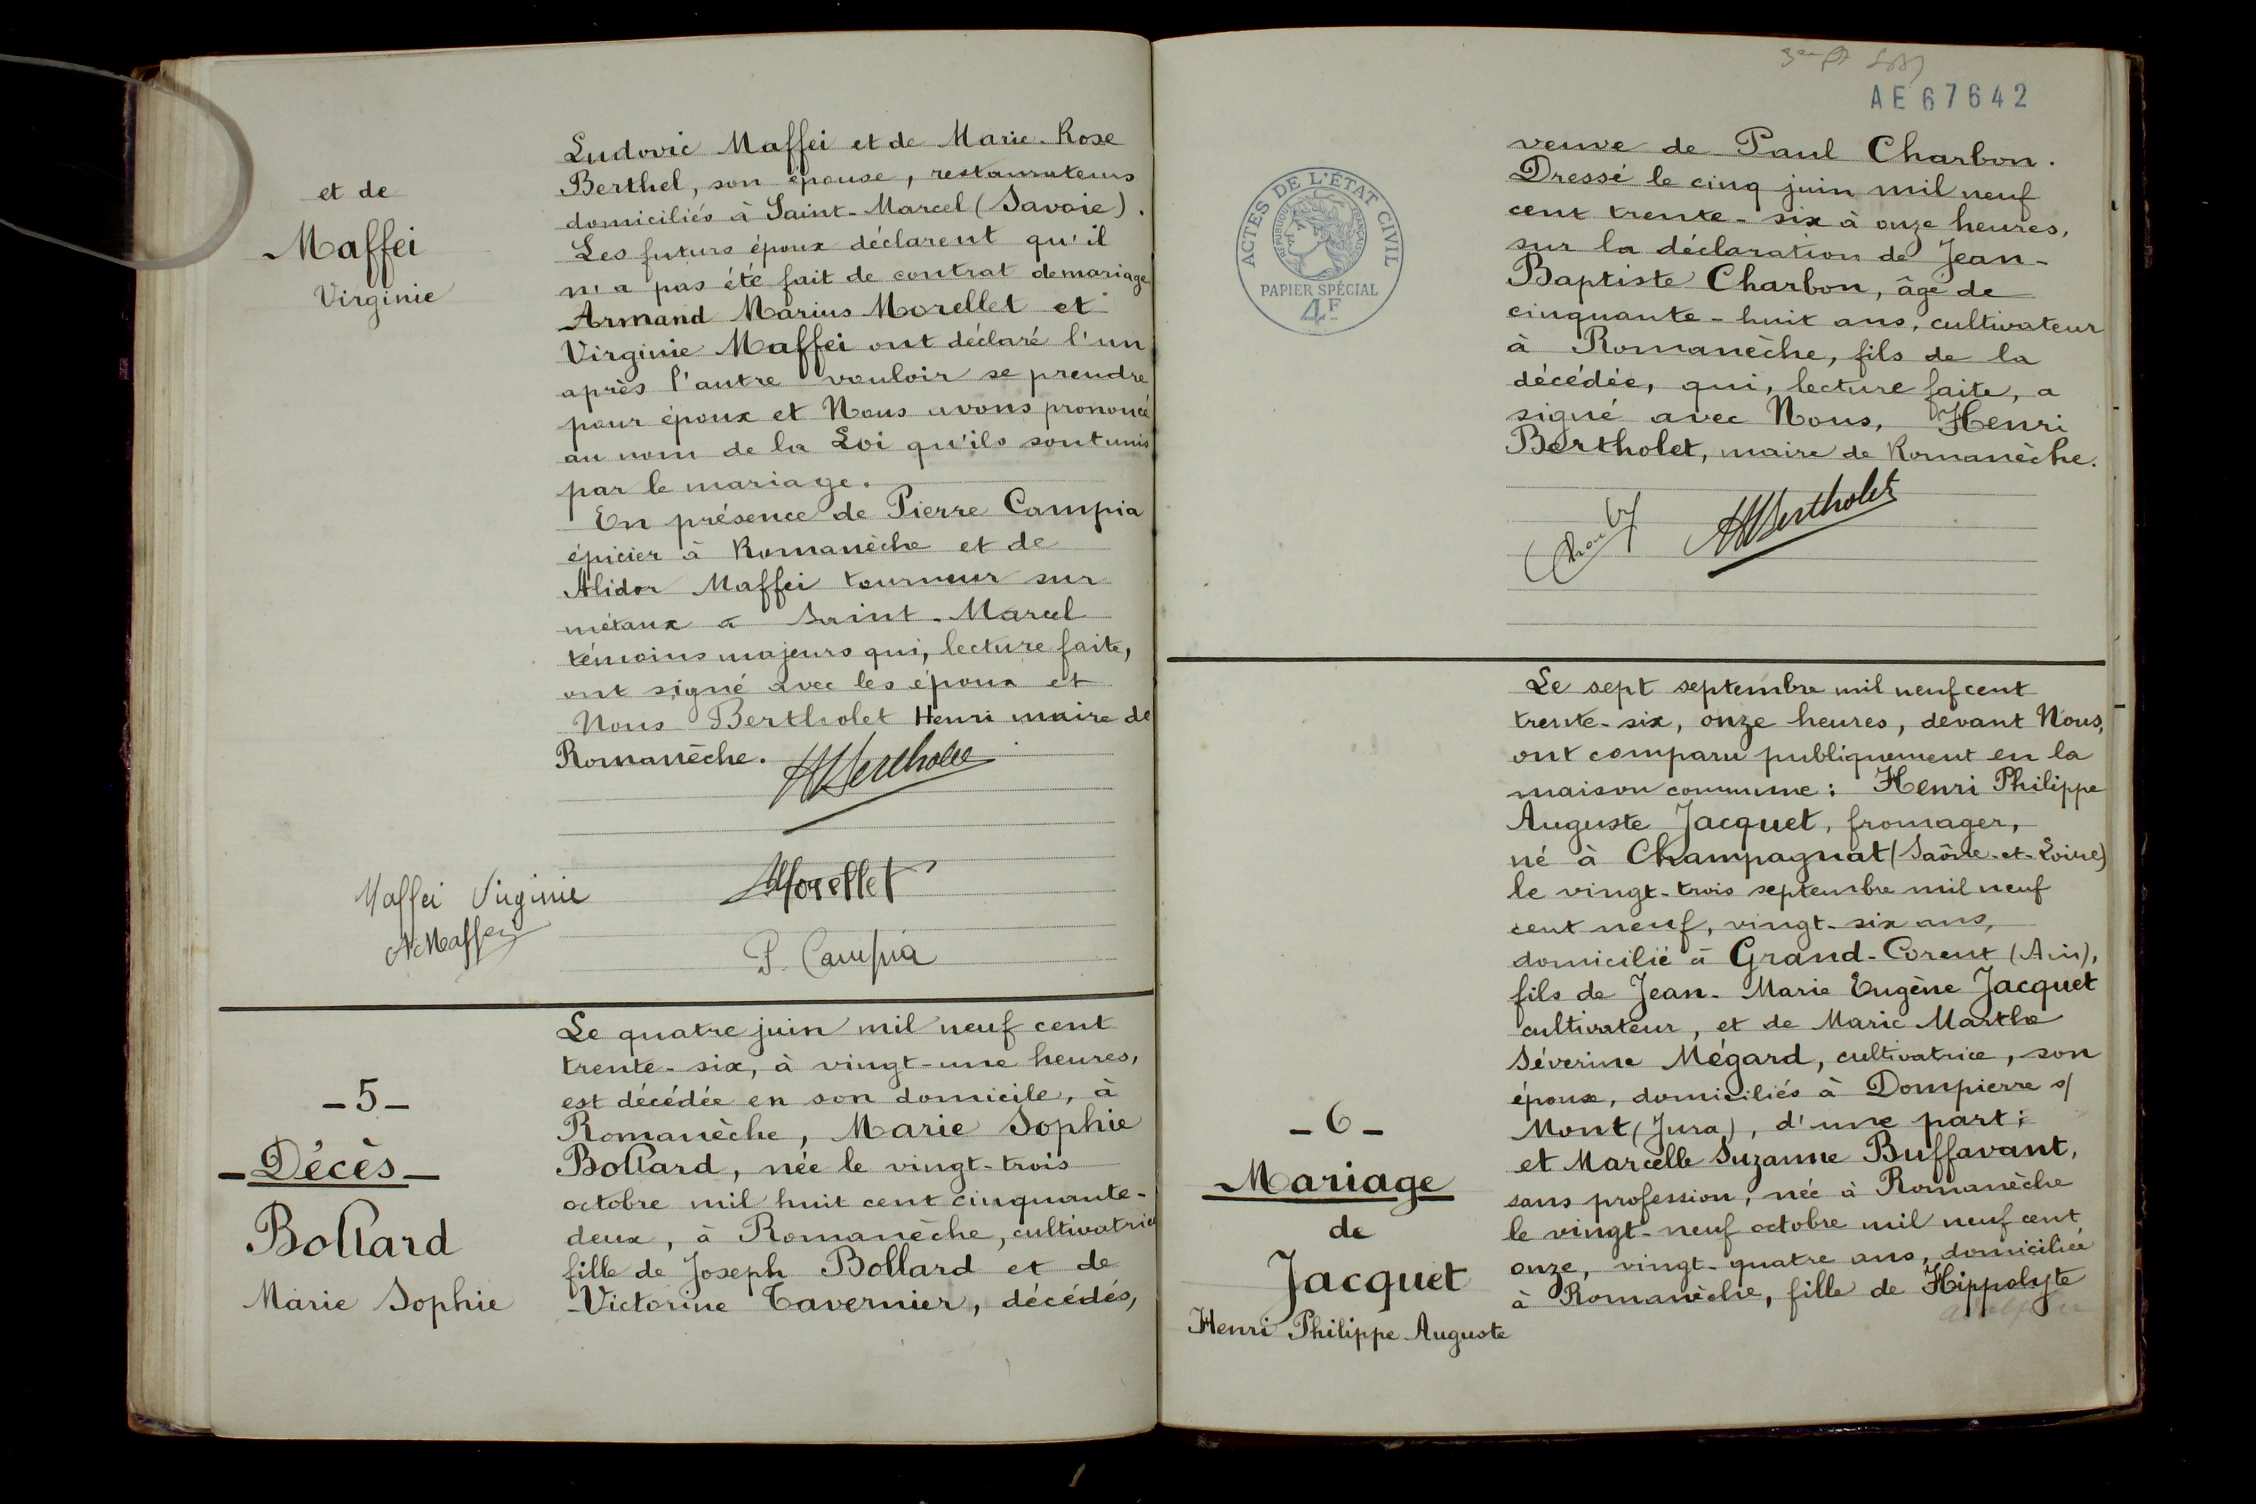 et de
Maffei
Virginie
Ludovic Maffei et de Marie-Rose
Berthel, son épouse, restaurateurs
domiciliés à Saint-Marcel (Savoie).
Les futurs époux déclarent qu'il
n'a pas été fait de contrat de mariage
Armand Marius Morellet et
Virginie Maffei ont déclaré l'un
après l'autre vouloir se prendre
pour époux et Nous avons prononcé
au nom de la Loi qu'ils sont unis
par le mariage.
En présence de Pierre Campia
épicier à Romanèche et de
Alidor Maffei tourneur sur
métaux à Saint-Marcel
témoins majeurs qui, lecture faite,
ont signé avec les époux et
Nous Bertholet Henri maire de
Romanèche.
HBertholet
Maffei Virginie
AMorellet
A Maffei
P. Campia
- 5 -
- Décès -
Bollard
Marie Sophie
Le quatre juin mil neuf cent
trente-six, à vingt-une heures,
est décédée en son domicile, à
Romanèche, Marie Sophie
Bollard, née le vingt-trois
octobre mil huit cent cinquante-
deux, à Romanèche, cultivatrice
fille de Joseph Bollard et de
Victorine Tavernier, décédés,
AE67642
ACTES DE L'ÉTAT CIVIL
RÉPUBLIQUE FRANÇAISE
PAPIER SPÉCIAL
4F
veuve de Paul Charbon.
Dressé le cinq juin mil neuf
cent trente-six à onze heures,
sur la déclaration de Jean-
Baptiste Charbon, âgé de
cinquante-huit ans, cultivateur
à Romanèche, fils de la
décédée, qui, lecture faite, a
signé avec Nous, Henri
Bertholet, maire de Romanèche.
HBertholet
- 6 -
Mariage
de
Jacquet
Henri Philippe Auguste
Le sept septembre mil neuf cent
trente-six, onze heures, devant Nous,
ont comparu publiquement en la
maison commune: Henri Philippe
Auguste Jacquet, fromager,
né à Champagnat (Saône-et-Loire)
le vingt-trois septembre mil neuf
cent neuf, vingt-six ans,
domicilié à Grand-Corent (Ain),
fils de Jean-Marie Eugène Jacquet
cultivateur, et de Marie Marthe
Séverine Mégard, cultivatrice, son
épouse, domiciliés à Dompierre s/
Mont (Jura), d'une part;
et Marcelle Suzanne Buffavant,
sans profession, née à Romanèche
le vingt-neuf octobre mil neuf cent
onze, vingt-quatre ans, domiciliée
à Romanèche, fille de Hippolyte